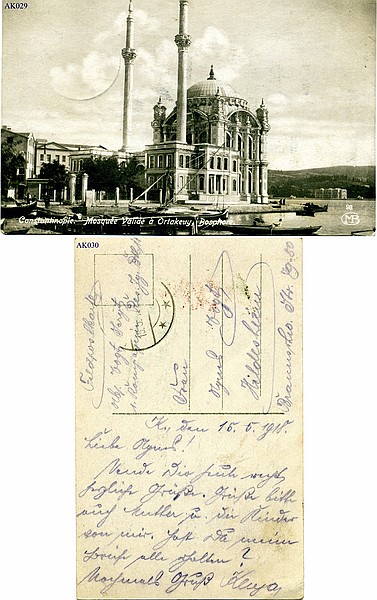 AK029
Constantinople. Mosquée Validé à Ortakeuy, Bosphore.
MB
AK030
Feldpostkarte
Frau
Agnes Vogt
Hildesheim
Braunschw. Str.
K., den 15. 5. 1918.
Liebe Agnes!
Sende Dir heute recht
herzliche Grüße. Grüße bitte
auch Mutter u. die Kinder
von mir. Hast Du meine
Briefe alle erhalten?
Nochmals Gruß